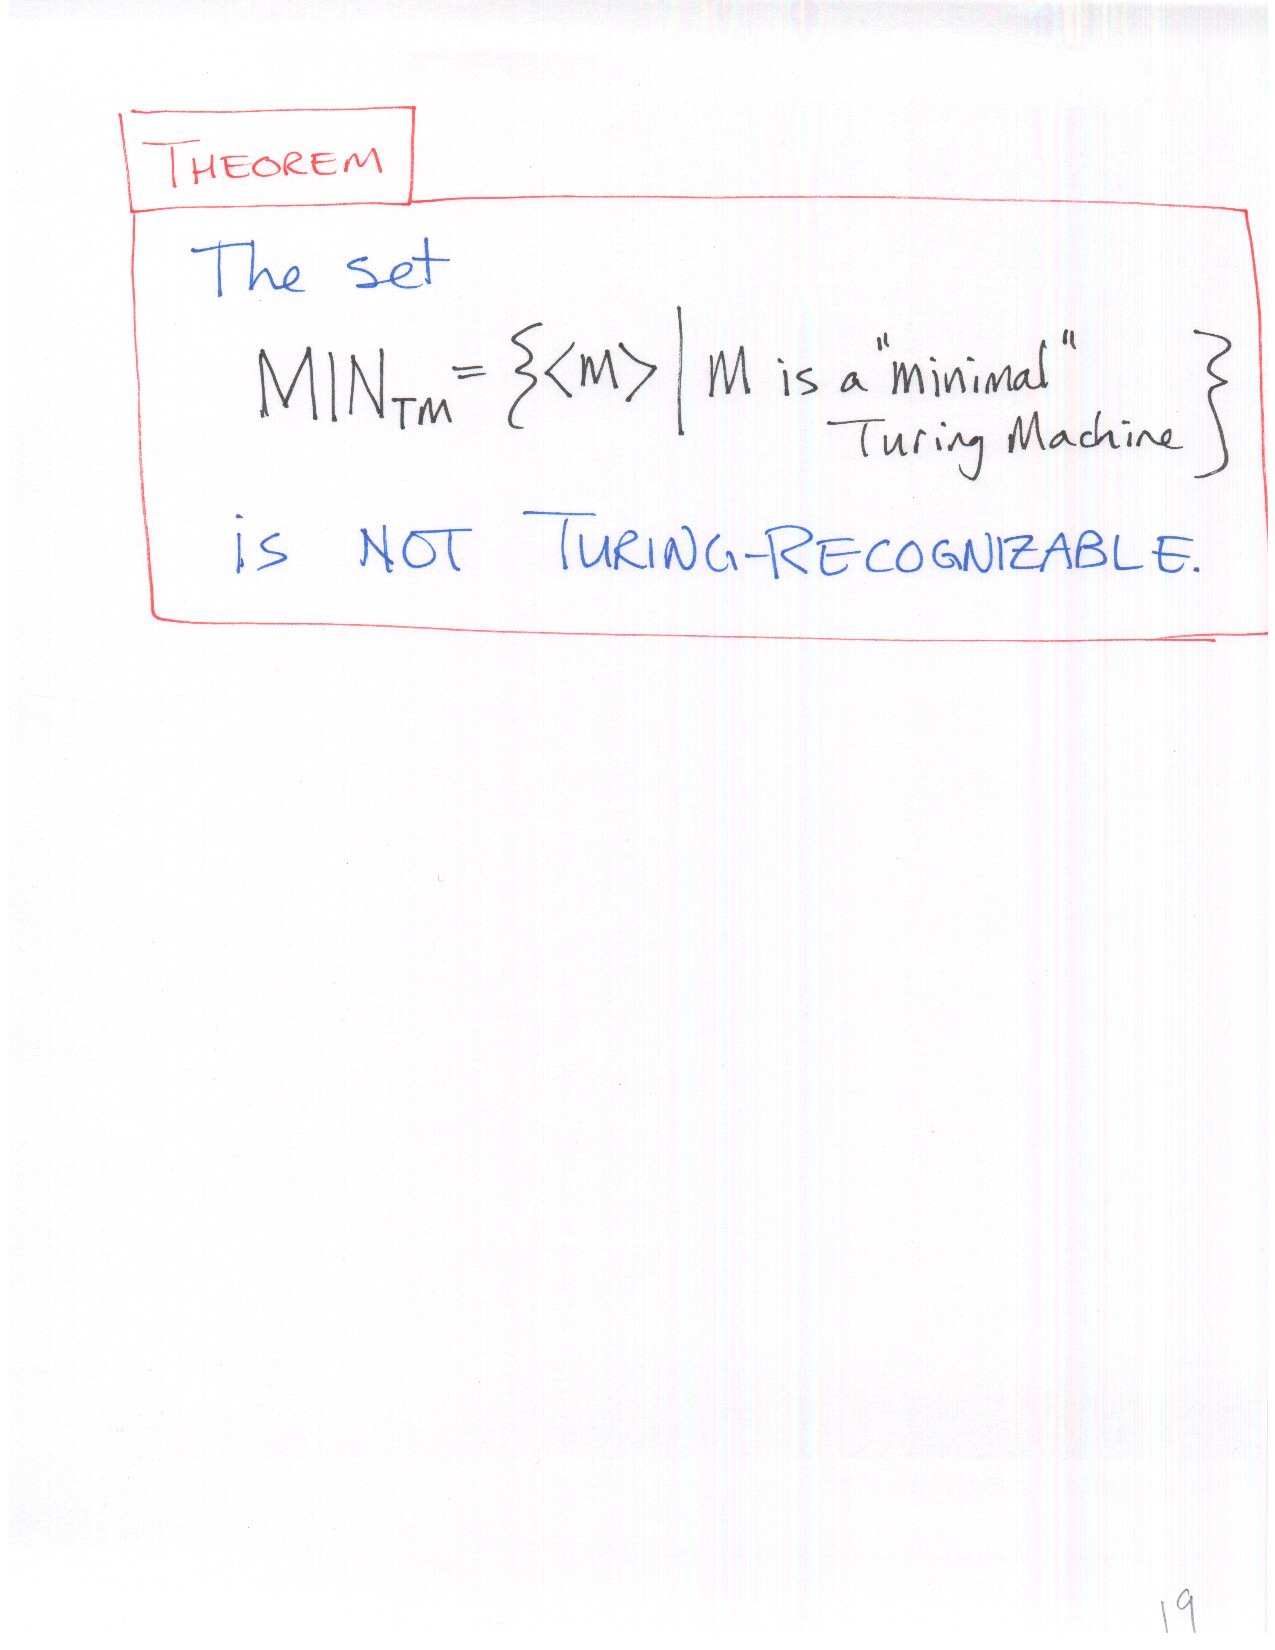 THEOREM
The set
MIN_TM = {<M> | M is a "minimal"
Turing Machine }
is NOT TURING-RECOGNIZABLE.
19